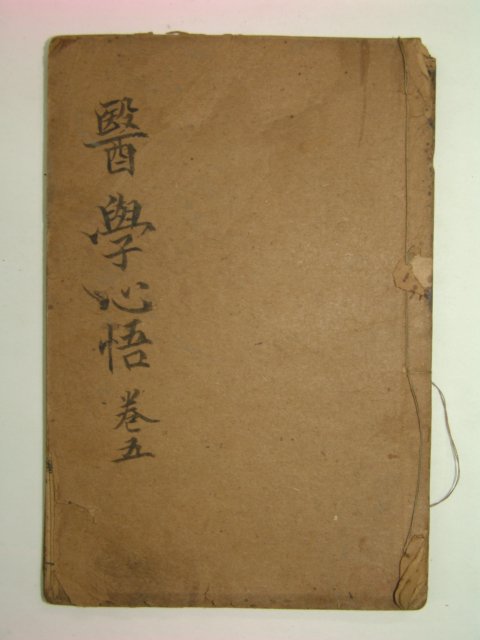 醫學心悟 卷五